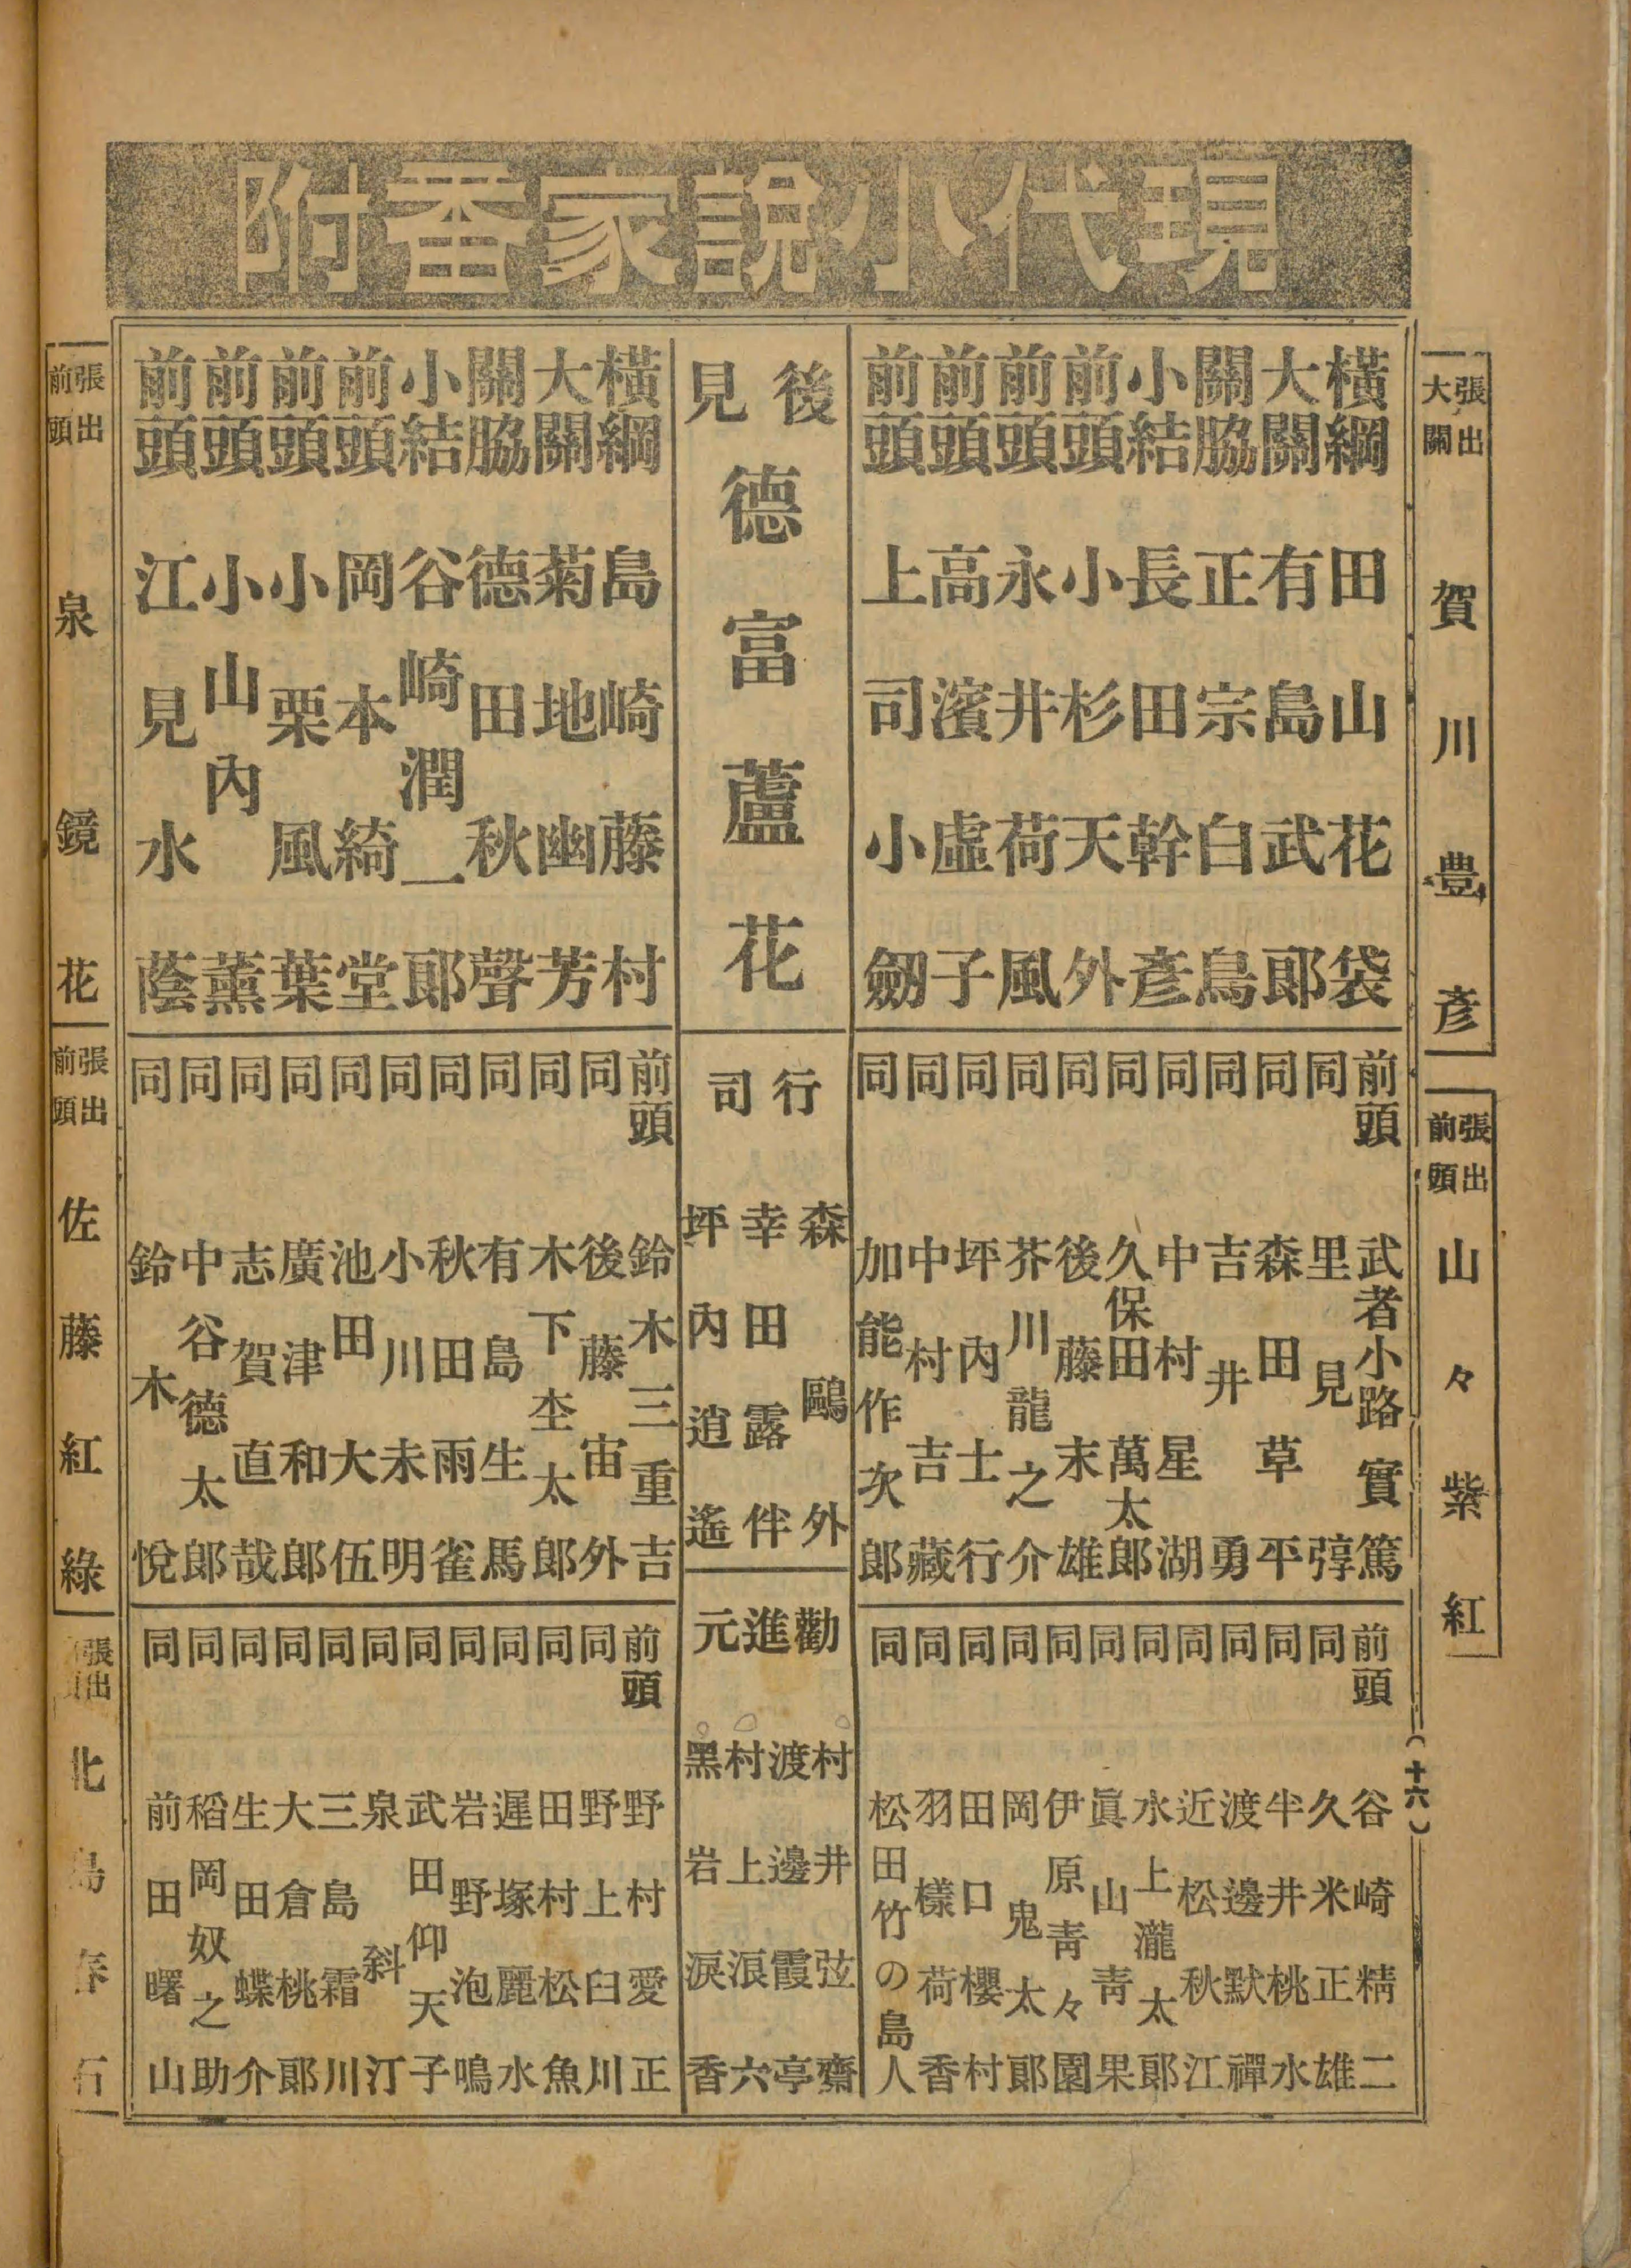 現代小說家番附
張出大關 賀川豊彥
張出前頭 山々紫紅
橫綱 田山花袋
大關 有島武郎
關脇 正宗白鳥
小結 長田幹彥
前頭 小杉天外
前頭 永井荷風
前頭 高濱虛子
前頭 上司小劔
前頭 武者小路實篤
同 里見弴
同 森田草平
同 吉井勇
同 中村星湖
同 久保田萬太郎
同 後藤末雄
同 芥川龍之介
同 坪內士行
同 中村吉藏
同 加能作次郎
前頭 谷崎精二
同 久米正雄
同 半井桃水
同 渡邊默禪
同 近松秋江
同 水上瀧太郎
同 眞山青果
同 伊原青々園
同 岡鬼太郎
同 田口櫻村
同 羽樣荷香
同 松田竹の島人
後見 德富蘆花
行司
森鷗外
幸田露伴
坪內逍遙
勸進元
村井弦齋
渡邊霞亭
村上浪六
黑岩淚香
橫綱 島崎藤村
大關 菊地幽芳
關脇 德田秋聲
小結 谷崎潤一郎
前頭 岡本綺堂
前頭 小栗風葉
前頭 小山內薰
前頭 江見水蔭
前頭 鈴木三重吉
同 後藤宙外
同 木下杢太郎
同 有島生馬
同 秋田雨雀
同 小川未明
同 池田大伍
同 廣津和郎
同 志賀直哉
同 中谷德太郎
同 鈴木悅
前頭 野村愛正
同 野上臼川
同 田村松魚
同 遲塚麗水
同 岩野泡鳴
同 武田仰天子
同 泉斜汀
同 三島霜川
同 大倉桃郎
同 生田蝶介
同 稻岡奴之助
同 前田曙山
張出前頭 泉鏡花
張出前頭 佐藤紅綠
張出 北島春石
(十六)